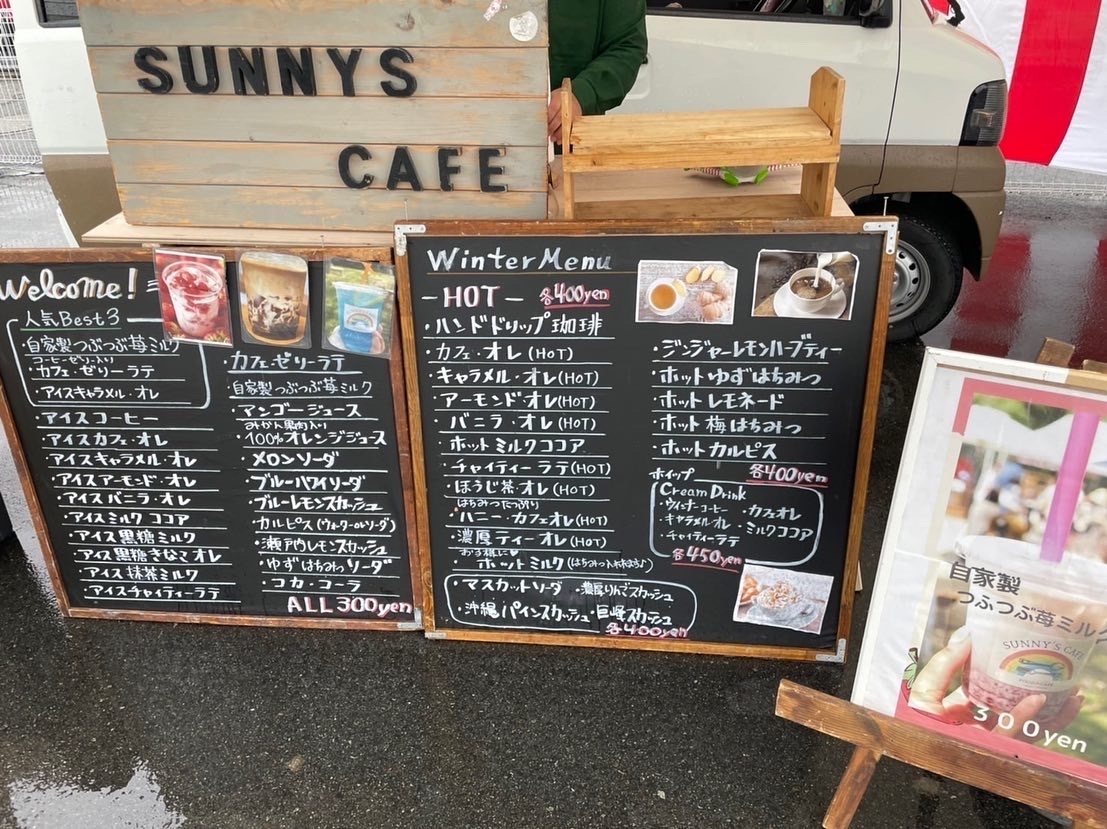 SUNNYS
CAFE
Welcome!
人気Best3
・自家製つぶつぶ苺ミルク
コーヒーゼリー入り
・カフェ・ゼリーラテ
・アイスキャラメル・オレ
・アイスコーヒー
・アイスカフェ・オレ
・アイスキャラメル・オレ
・アイスアーモンド・オレ
・アイスバニラ・オレ
・アイスミルクココア
・アイス黒糖ミルク
・アイス黒糖きなこオレ
・アイス抹茶ミルク
・アイスチャイティーラテ
・カフェ・ゼリーラテ
・自家製つぶつぶ苺ミルク
・マンゴージュース
みかん果肉入り
・100%オレンジジュース
・メロンソーダ
・ブルーハワイソーダ
・ブルーレモンスカッシュ
・カルピス(ウォーターorソーダ)
・瀬戸内レモンスカッシュ
・ゆずはちみつソーダ
・コカ・コーラ
ALL 300yen
Winter Menu
-HOT- 各400yen
・ハンドドリップ珈琲
・カフェ・オレ(HOT)
・キャラメル・オレ(HOT)
・アーモンド・オレ(HOT)
・バニラ・オレ(HOT)
・ホットミルクココア
・チャイティーラテ(HOT)
・ほうじ茶・オレ(HOT)
はちみつたっぷり
・ハニー・カフェオレ(HOT)
・濃厚ティーオレ(HOT)
お子様に♥
・ホットミルク(はちみつ入れれます♪)
・ジンジャーレモンハーブティー
・ホットゆずはちみつ
・ホットレモネード
・ホット梅はちみつ
・ホットカルピス
各400yen
ホイップ
Cream Drink
・ウィンナーコーヒー ・カフェオレ
・キャラメルオレ ・ミルクココア
・チャイティーラテ
各450yen
・マスカットソーダ ・濃厚りんごスカッシュ
・沖縄パインスカッシュ ・巨峰スカッシュ
各400yen
自家製
つぶつぶ苺ミルク
SUNNY'S CAFE
300yen